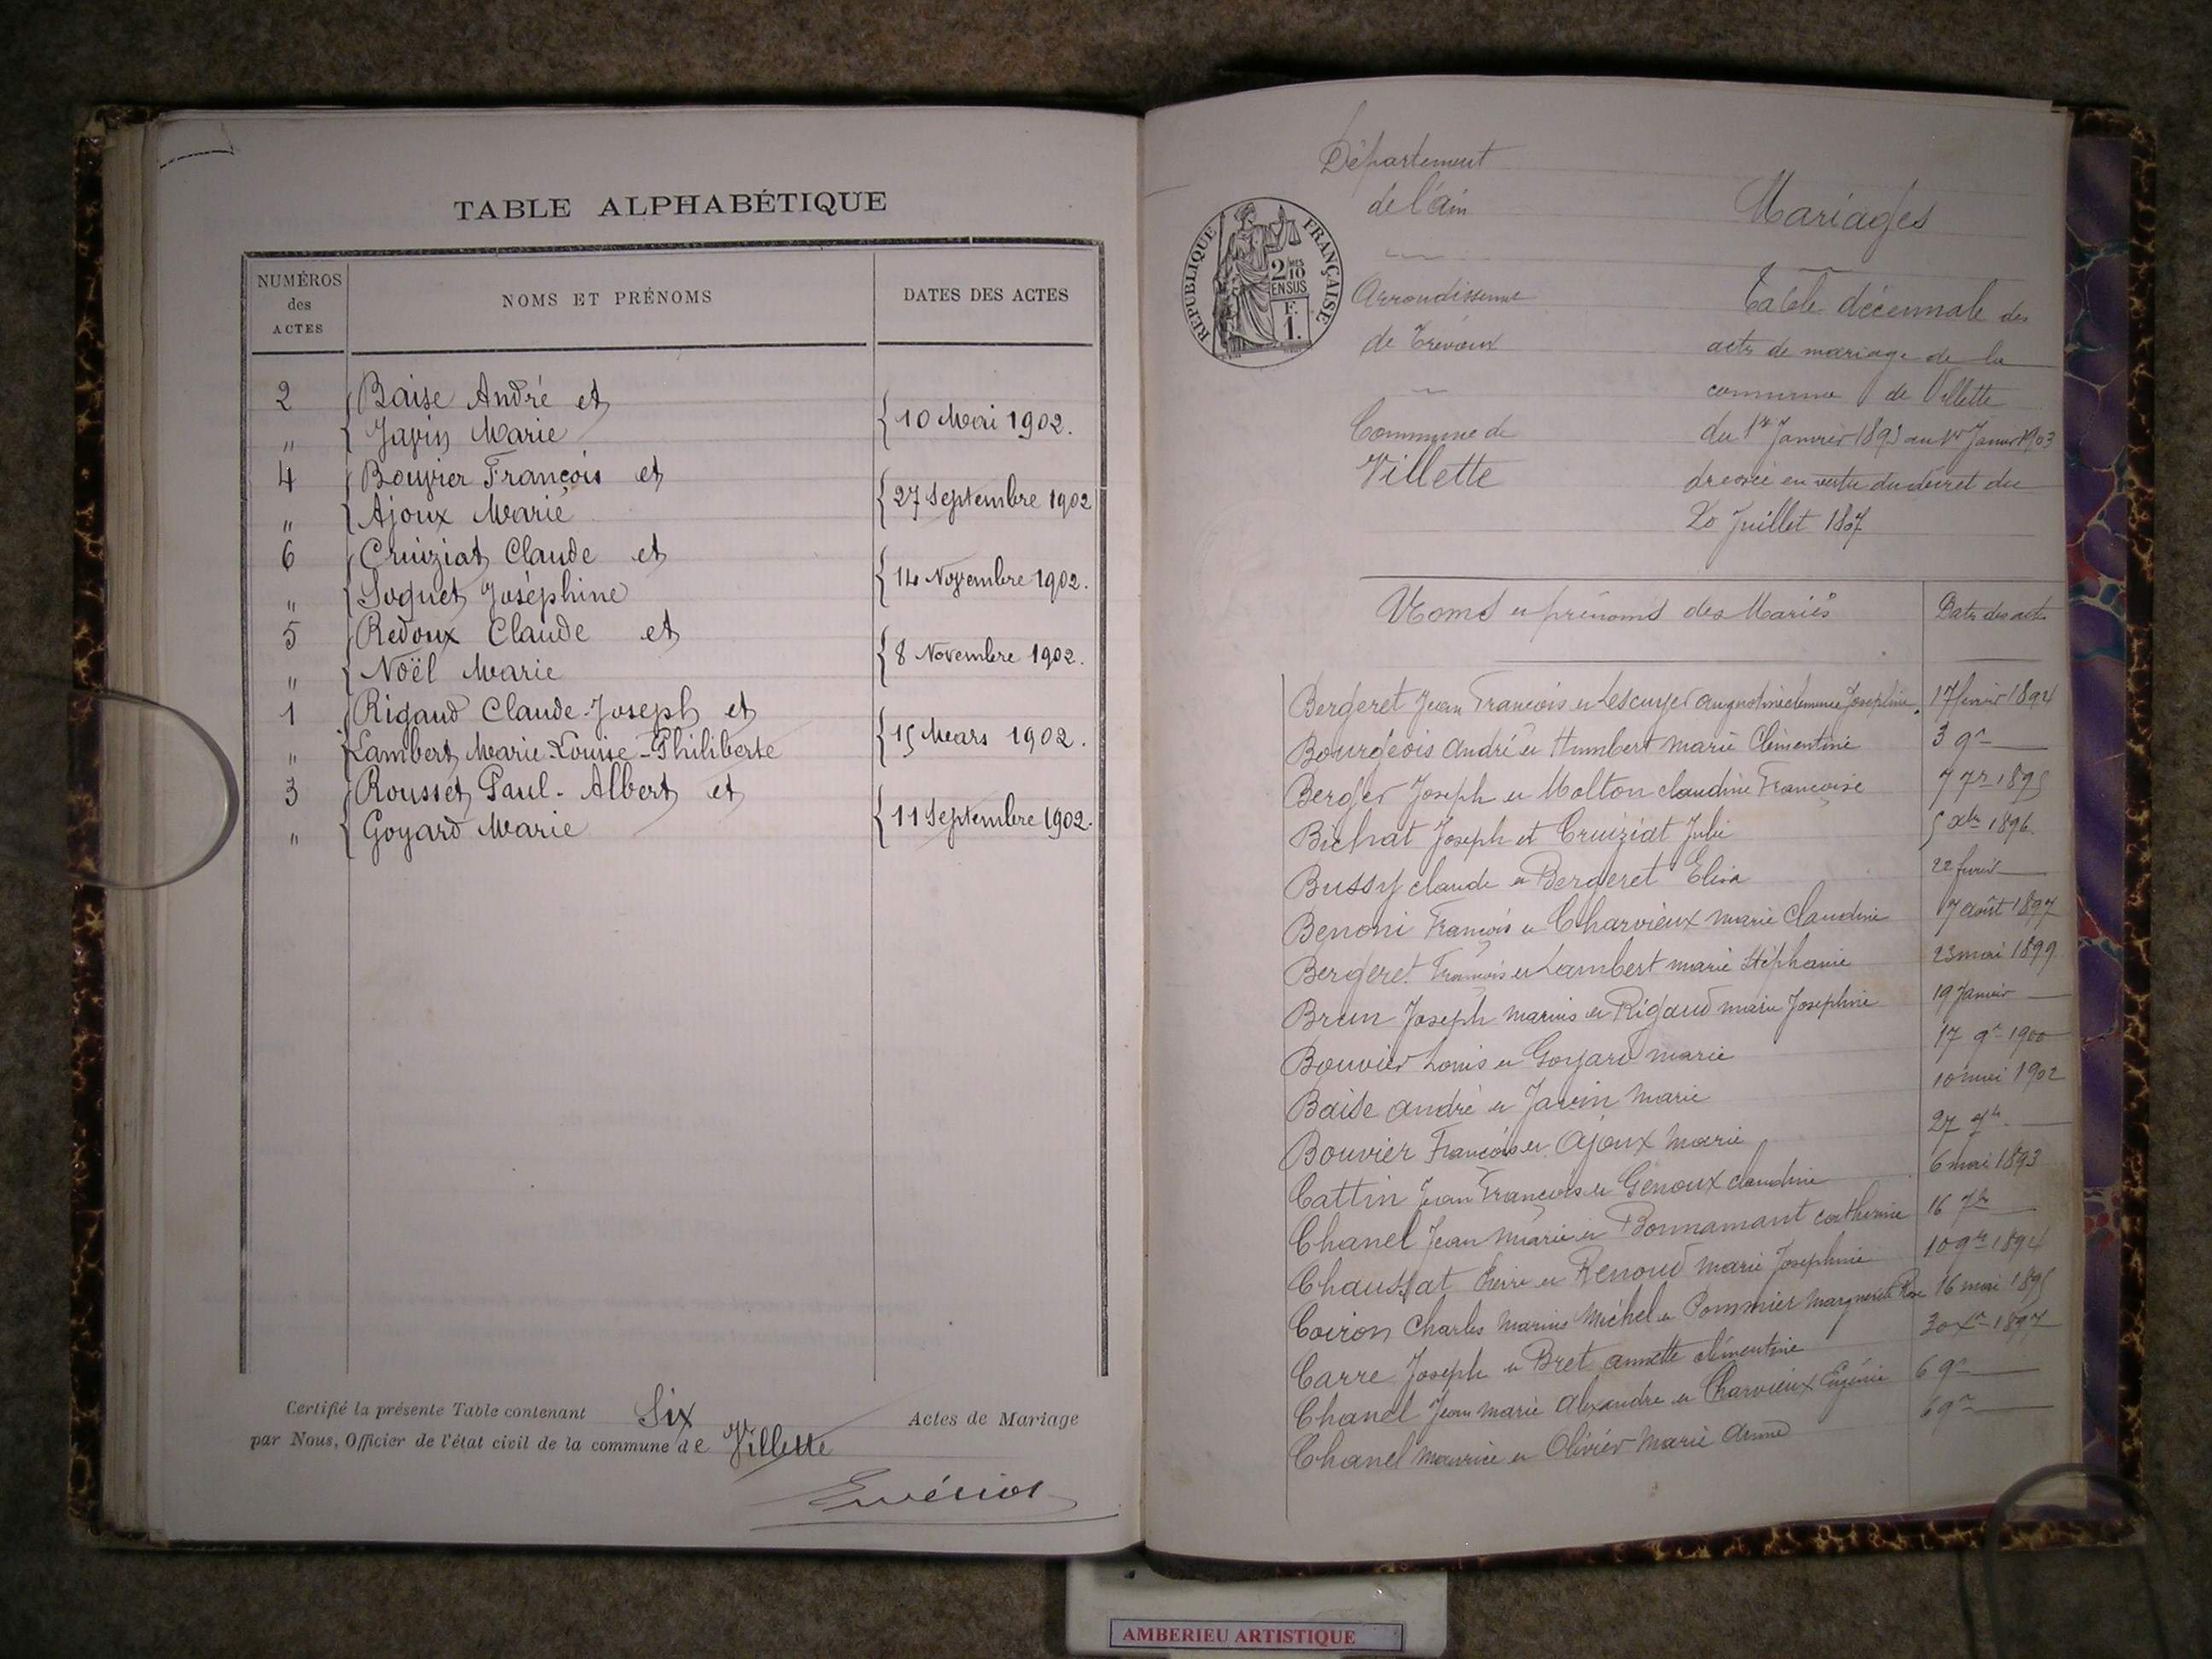 TABLE ALPHABÉTIQUE
NUMÉROS des ACTES
NOMS ET PRÉNOMS
DATES DES ACTES
2 Baise André et
" Javin Marie
10 Mai 1902.
4 Bouvier François et
" Ajoux Marie
27 Septembre 1902
6 Cruiziat Claude et
" Soquet Joséphine
14 Novembre 1902.
5 Redoux Claude et
" Noël Marie
8 Novembre 1902.
1 Rigaud Claude-Joseph et
" Lambert Marie-Louise-Philiberte
15 Mars 1902.
3 Rousset Paul-Albert et
" Goyard Marie
11 Septembre 1902.
Certifié la présente Table contenant Six Actes de Mariage
par Nous, Officier de l'état civil de la commune de Villette
Département
de l'Ain
Arrondissement
de Trévoux
Commune de
Villette
RÉPUBLIQUE FRANÇAISE
2/10 MES
EN SUS
F.
1.
Mariages
Table décennale des
actes de mariage de la
commune de Villette
du 1er Janvier 1893 au 1er Janvier 1903
dressée en vertu du décret du
20 Juillet 1807
Noms et prénoms des Mariés
Dates des actes
Bergeret Jean François et Lescuyer Augustine Clémence Joséphine 17 février 1894
Bourgeois André et Humbert Marie Clémentine 3 9re —
Berger Joseph et Molton Claudine Françoise 7 7re 1895
Bichat Joseph et Cruiziat Julie 5 xbre 1896
Bussy Claude et Bergeret Elisa 22 février —
Benoni François et Charvieux Marie Claudine 7 août 1897
Bergeret François et Lambert Marie Stéphanie 23 mai 1899
Brun Joseph Marius et Rigaud Marie Joséphine 19 Janvier —
Bouvier Louis et Goyard Marie 17 9re 1900
Baise André et Javin Marie 10 mai 1902
Bouvier François et Ajoux Marie 27 7bre —
Cattin Jean François et Genoux Claudine 6 mai 1893
Chanel Jean Marie et Bonnamant Catherine 16 7bre —
Chaussat Pierre et Renoud Marie Joséphine 10 9bre 1894
Coiron Charles Marius Michel et Pommier Marguerite Rose 16 mai 1895
Carre Joseph et Bret Annette Clémentine 30 xre 1897
Chanel Jean Marie Alexandre et Charvieux Eugénie 6 9re —
Chanel Maurice et Olivier Marie Anne 6 9re —
AMBERIEU ARTISTIQUE